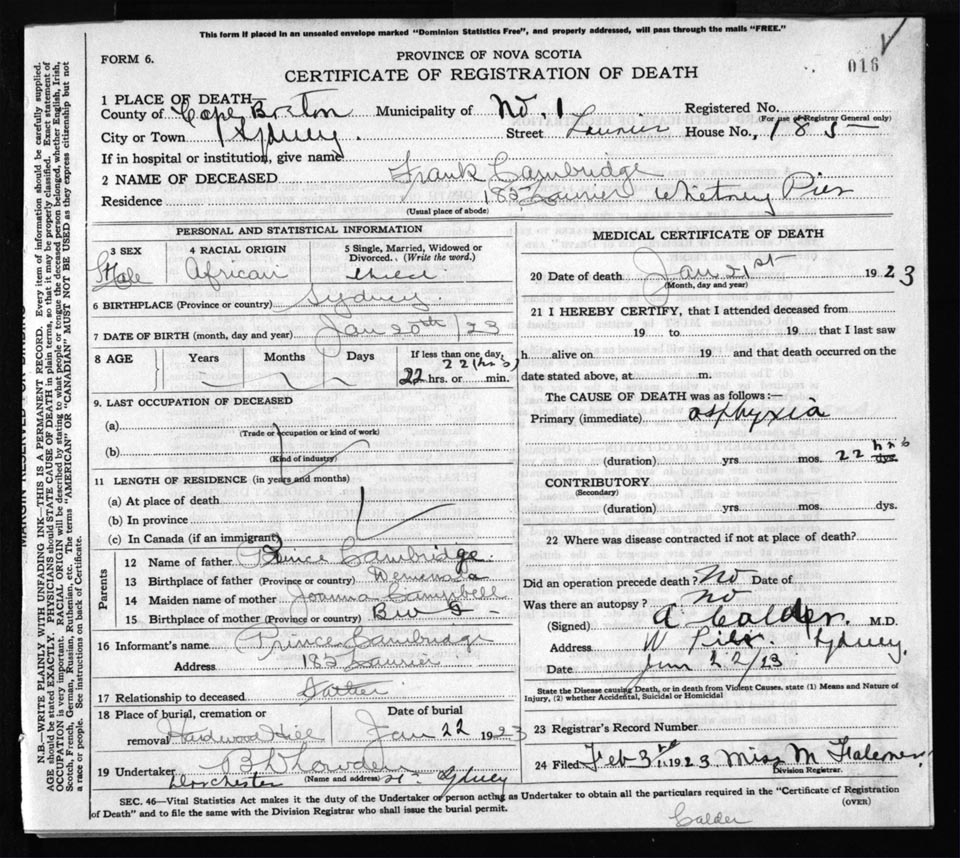 This form if placed in an unsealed envelope marked "Dominion Statistics Free", and properly addressed, will pass through the mails "FREE."
FORM 6.
PROVINCE OF NOVA SCOTIA
CERTIFICATE OF REGISTRATION OF DEATH
016
1 PLACE OF DEATH—
County of Cape Breton Municipality of No. 1 Registered No.
(For use of Registrar General only)
City or Town Sydney. Street Laurier House No., 185
If in hospital or institution, give name
2 NAME OF DECEASED Frank Cambridge
Residence 185 Laurier Whitney Pier
(Usual place of abode)
PERSONAL AND STATISTICAL INFORMATION
3 SEX Male
4 RACIAL ORIGIN African
5 Single, Married, Widowed or Divorced. (Write the word.)
6 BIRTHPLACE (Province or country) Sydney.
7 DATE OF BIRTH (month, day and year) Jan 20th /23
8 AGE Years Months Days If less than one day,
22 (hrs)
22 hrs. or min.
9. LAST OCCUPATION OF DECEASED
(a)
(Trade or occupation or kind of work)
(b)
(Kind of industry)
11 LENGTH OF RESIDENCE (in years and months)
(a) At place of death
(b) In province
(c) In Canada (if an immigrant)
Parents
12 Name of father Prince Cambridge.
13 Birthplace of father (Province or country)
14 Maiden name of mother Joanna Campbell
15 Birthplace of mother (Province or country)
16 Informant's name Prince Cambridge
Address 185 Laurier
17 Relationship to deceased Father
18 Place of burial, cremation or removal Hardwood Hill
Date of burial Jan 22 1923
19 Undertaker
(Name and address)
Dorchester St. Sydney
MEDICAL CERTIFICATE OF DEATH
20 Date of death Jan 21st 1923
(Month, day and year)
21 I HEREBY CERTIFY, that I attended deceased from
19 to 19 that I last saw
h alive on 19 and that death occurred on the
date stated above, at m.
The CAUSE OF DEATH was as follows:—
Primary (immediate) asphyxia
(duration) yrs. mos. 22 hrs dys.
CONTRIBUTORY
(Secondary)
(duration) yrs. mos. dys.
22 Where was disease contracted if not at place of death?
Did an operation precede death? No Date of
Was there an autopsy? No
(Signed) A Calder. M.D.
Address W Pier. Sydney.
Date Jan 22/23
State the Disease causing Death, or in death from Violent Causes, state (1) Means and Nature of
Injury, (2) whether Accidental, Suicidal or Homicidal
23 Registrar's Record Number
24 Filed Feb 3rd 1923 Miss M
Division Registrar.
SEC. 46—Vital Statistics Act makes it the duty of the Undertaker or person acting as Undertaker to obtain all the particulars required in the "Certificate of Registration
of Death" and to file the same with the Division Registrar who shall issue the burial permit.
(OVER)
Calder
N.B.—WRITE PLAINLY WITH UNFADING INK—THIS IS A PERMANENT RECORD. Every item of information should be carefully supplied.
AGE should be stated EXACTLY. PHYSICIANS should STATE CAUSE OF DEATH in plain terms, so that it may be properly classified. Exact statement of
OCCUPATION is very important. RACIAL ORIGIN will be described by stating to what people or tongue the deceased person belonged, whether English, Irish,
Scotch, French, German, Russian, Ruthenian, etc. The terms "AMERICAN" OR "CANADIAN" MUST NOT BE USED as they express citizenship but not
a race or people. See instructions on back of Certificate.